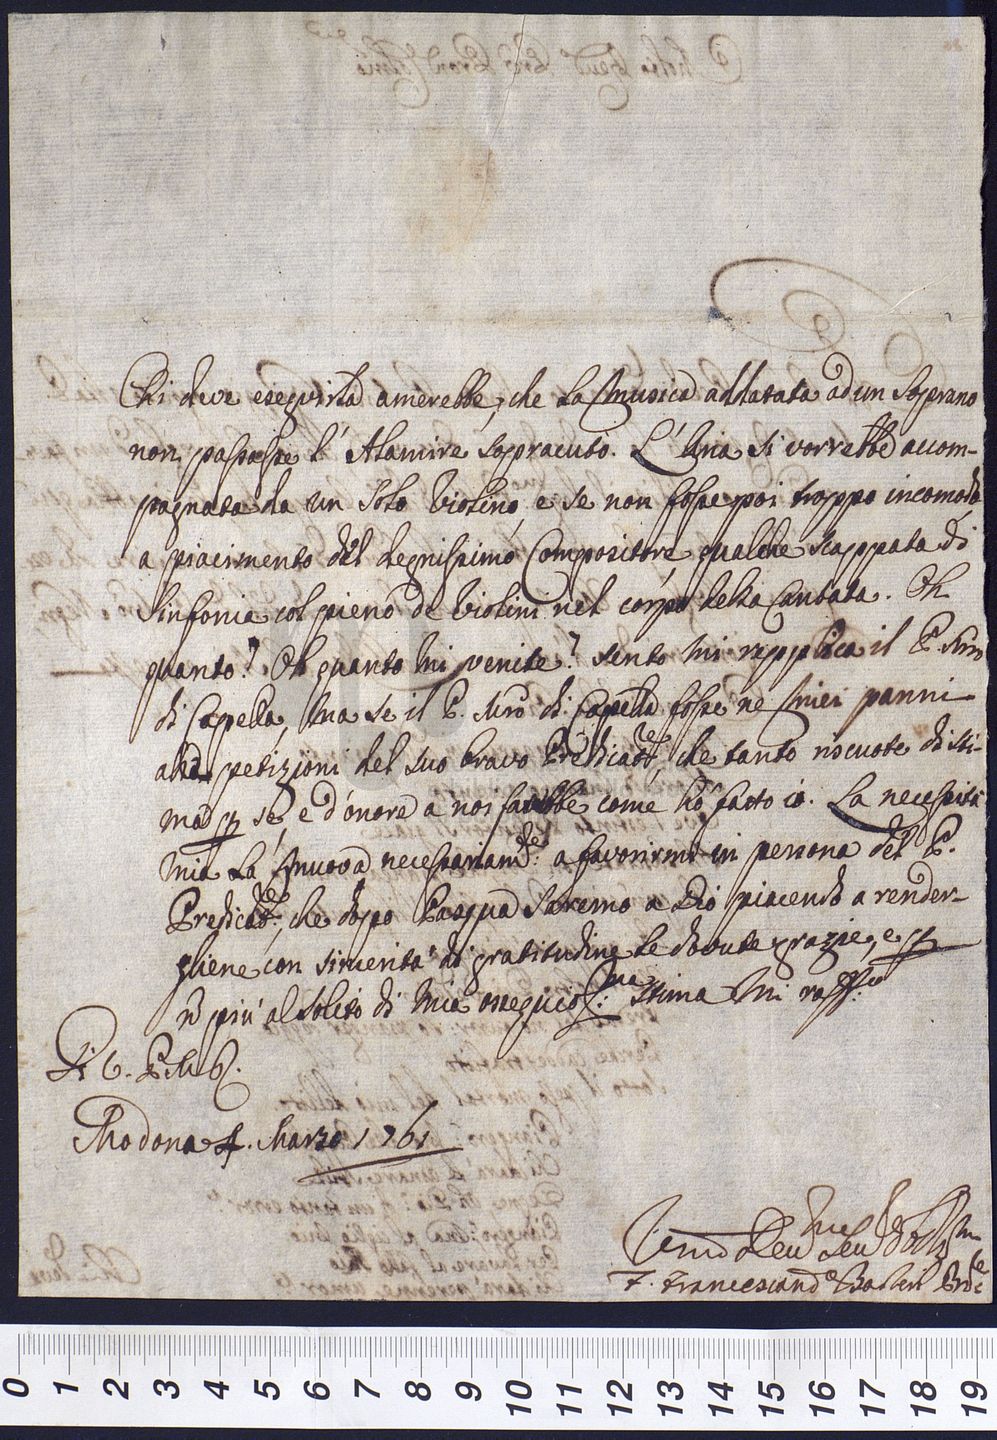 Chi deve eseguirla amerebbe, che la Musica addatata ad un Soprano
non passasse l'Alamirè sopracuto. L'Aria si vorrebbe accom-
pagnata da un solo Violino e se non fosse poi troppo incomodo
a piacimento del degnissimo Compositore qualche scappata di
Sinfonia col pieno de Violini nel corpo della Cantata. Oh
quanto? Oh quanto mi venite? sento mi repplica il P. Mro
di Capella, ma se il P. Mro di Capella fosse ne miei panni
petizioni del suo bravo Predicatre, che tanto riscuote di sti-
ma p se, e d'onore a noi farebbe come hò fatto io. La necessità
mia La muova necessariamte: a favorirmi in persona del P.
Predicatre, che doppo Pasqua saremo a Dio piacendo a render-
gliene con sincerità di gratitudine le dovute grazie, e p
più al solito di mia ossequiosma: stima mi raffco
Di V. P. M. R.
Modona 4. Marzo 1761
F. Francescanto
0 1 2 3 4 5 6 7 8 9 10 11 12 13 14 15 16 17 18 19